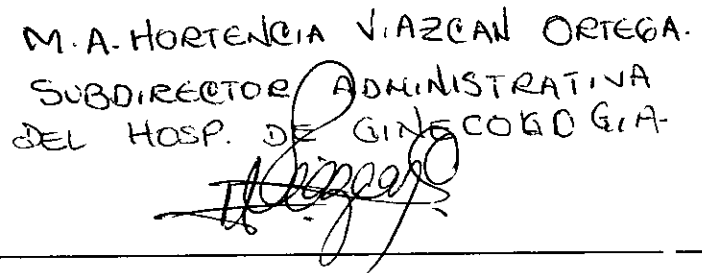 M.A. HORTENCIA VIAZCAN ORTEGA.
SUBDIRECTOR ADMINISTRATIVA
DEL HOSP. DE GINECOLOGIA-
Viazcan